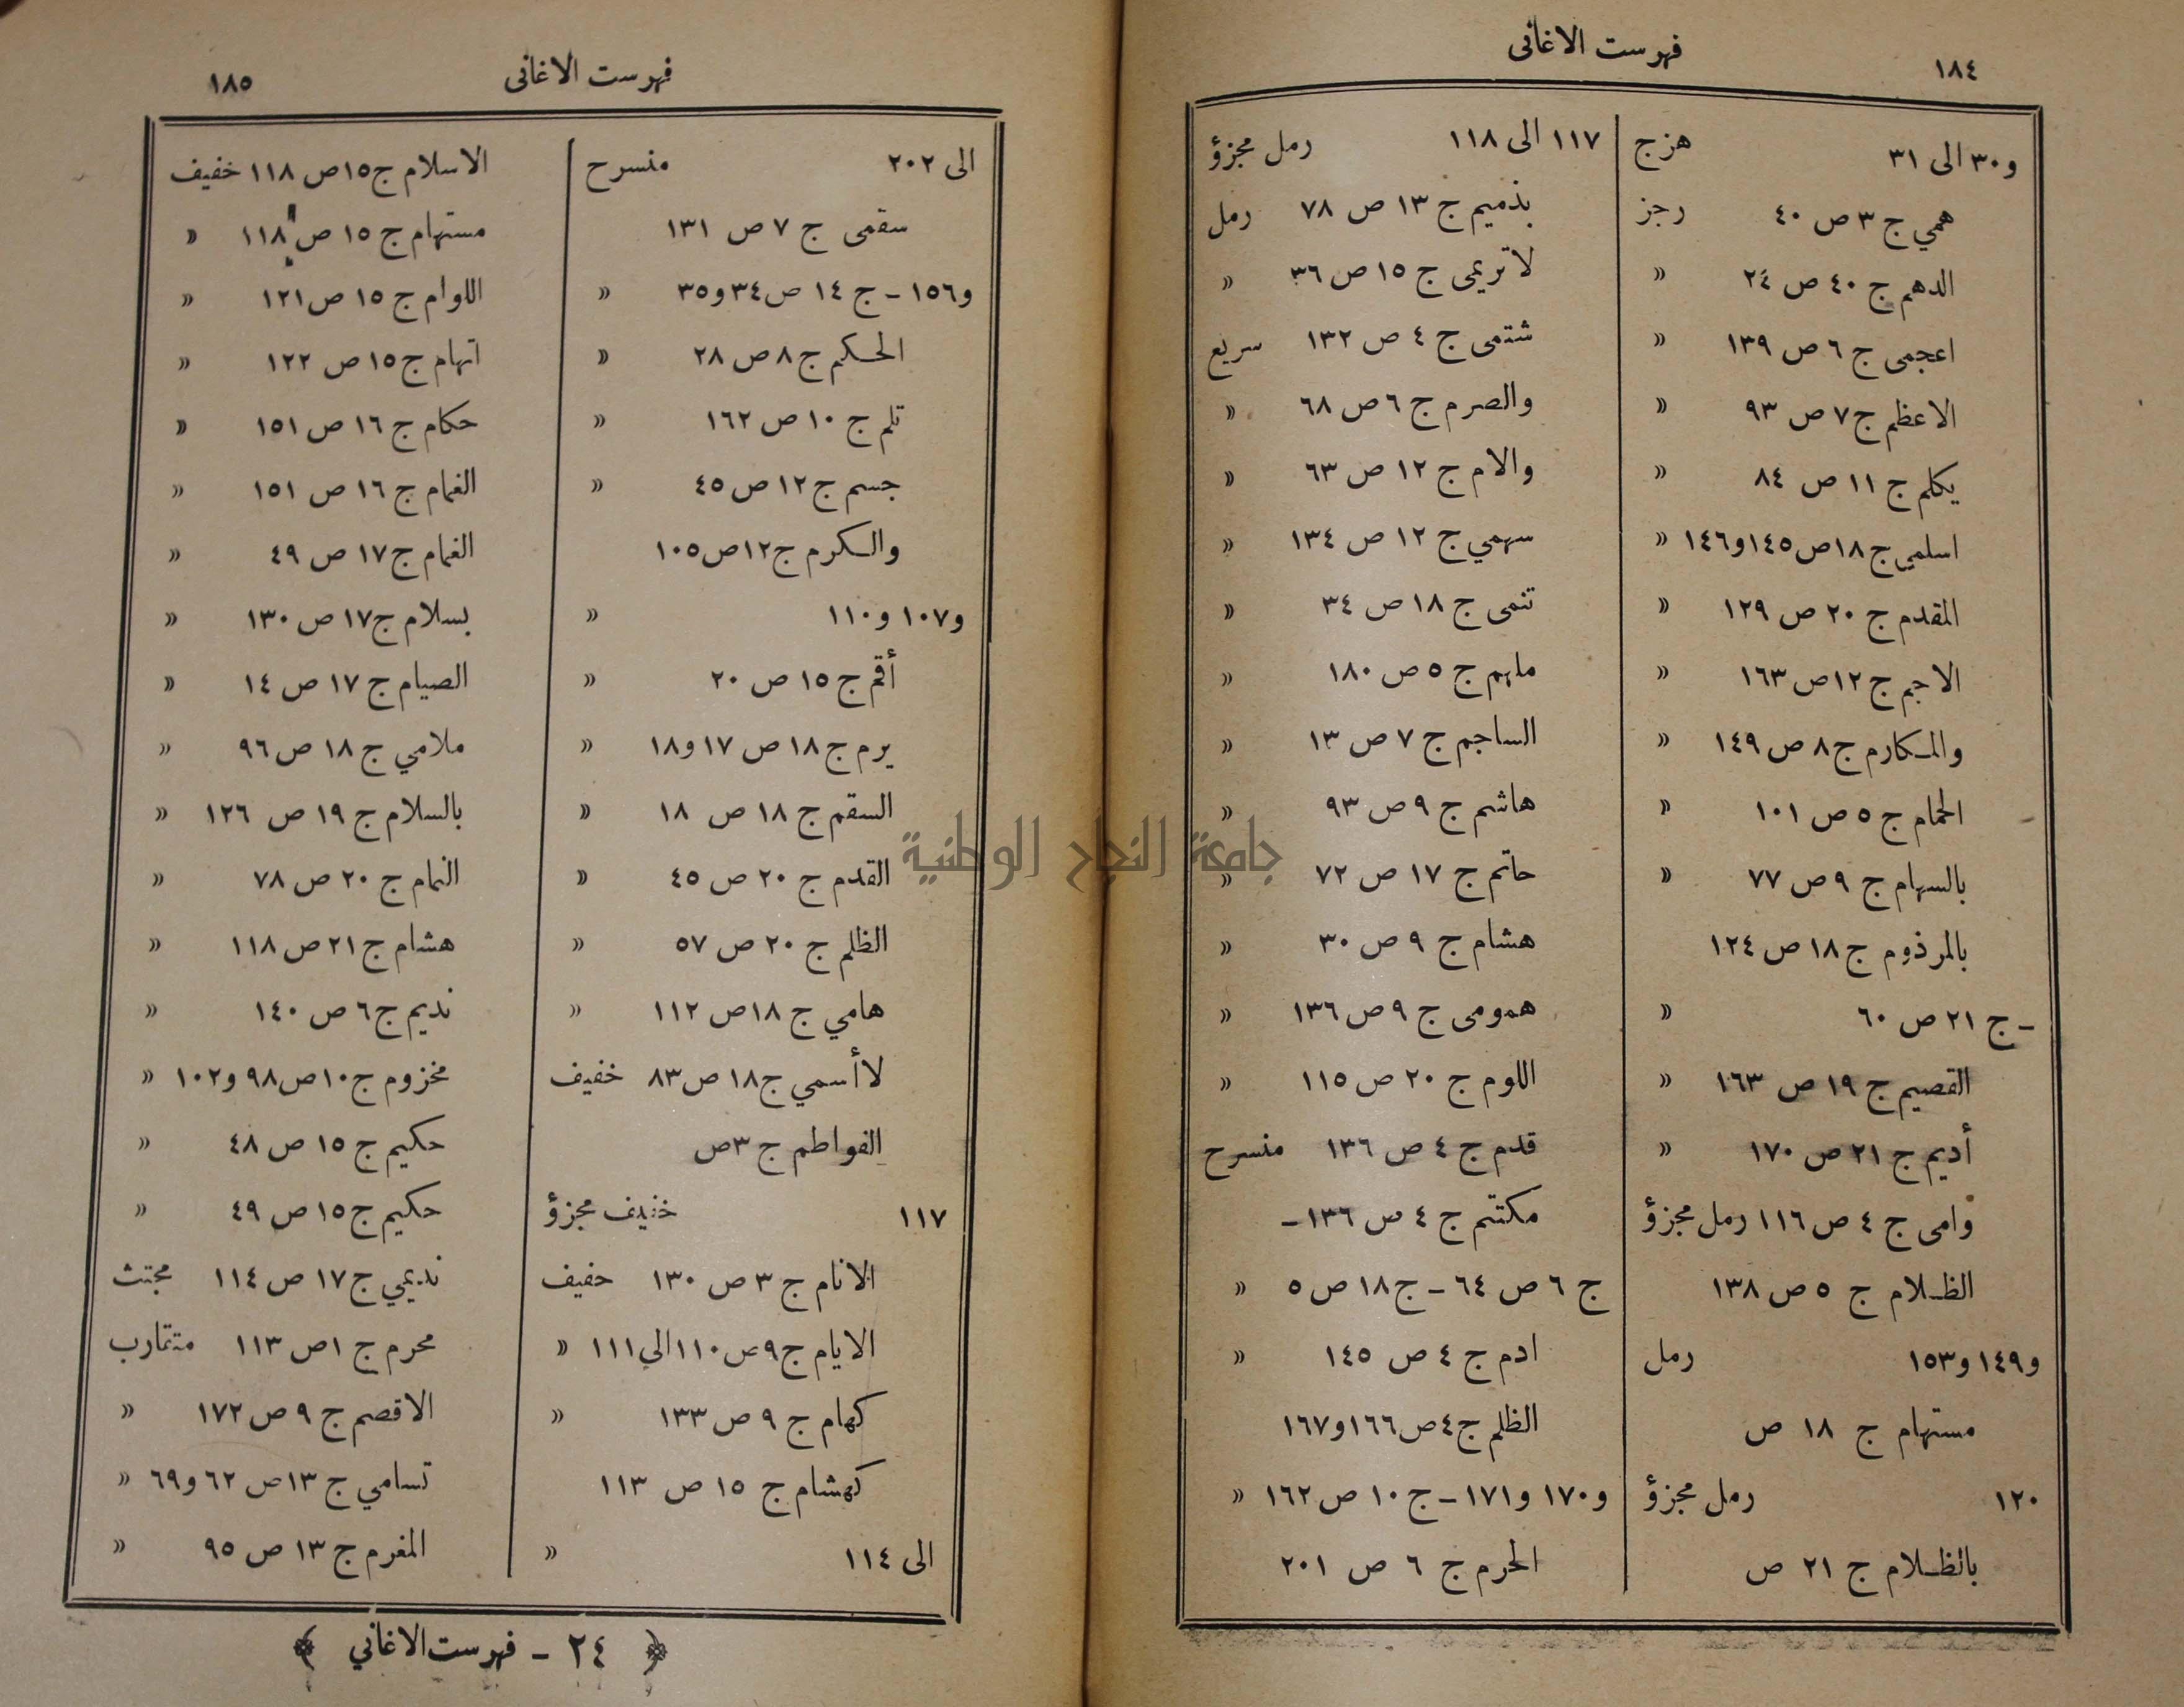 ١٨٤
فهرست الاغانى
و٣٠ الى ٣١ هزج
همي ج ٣ ص ٤٠ رجز
الدهم ج ٤٠ ص ٢٤ »
اعجمى ج ٦ ص ١٣٩ »
الاعظم ج ٧ ص ٩٣ »
يكلم ج ١١ ص ٨٤ »
اسلمي ج ١٨ص ١٤٥و١٤٦ »
المقدم ج ٢٠ ص ١٢٩ »
الاجم ج ١٢ص ١٦٣ »
والمكارم ج ٨ ص ١٤٩ »
الحمام ج ٥ ص ١٠١ »
بالسهام ج ٩ ص ٧٧ »
بالمرذوم ج ١٨ ص ١٢٤
ـ ج ٢١ ص ٦٠ »
القصيم ج ١٩ ص ١٦٣ »
أديم ج ٢١ ص ١٧٠ »
وامى ج ٤ ص ١١٦ رمل مجزؤ
الظـلام ج ٥ ص ١٣٨
و١٤٩ و١٥٣ رمل
مستهام ج ١٨ ص
١٢٠ رمل مجزؤ
بالظـلام ج ٢١ ص
١١٧ الى ١١٨ رمل مجزؤ
بذميم ج ١٣ ص ٧٨ رمل
لاتريمى ج ١٥ ص ٣٦ »
شتمى ج ٤ ص ١٣٢ سريع
والصرم ج ٦ ص ٦٨ »
والام ج ١٢ ص ٦٣ »
سهمي ج ١٢ ص ١٣٤ »
تنمى ج ١٨ ص ٣٤ »
ملهم ج ٥ ص ١٨٠ »
الساجم ج ٧ ص ١٣ »
هاشم ج ٩ ص ٩٣ »
حاتم ج ١٧ ص ٧٢ »
هشام ج ٩ ص ٣٠ »
همومى ج ٩ ص ١٣٦ »
اللوم ج ٢٠ ص ١١٥ »
قدم ج ٤ ص ١٣٦ منسرح
مكتتم ج ٤ ص ١٣٦ـ
ج ٦ ص ٦٤ ـ ج ١٨ ص ٥ »
ادم ج ٤ ص ١٤٥ »
الظلم ج ٤ص ١٦٦و١٦٧
و١٧٠ و١٧١ ـ ج ١٠ ص ١٦٢ »
الحرم ج ٦ ص ٢٠١
فهرست الاغانى
١٨٥
الى ٢٠٢ منسرح
سقمى ج ٧ ص ١٣١
و١٥٦ ـ ج ١٤ ص ٣٤و٣٥ »
الحـكم ج ٨ ص ٢٨ »
تلم ج ١٠ ص ١٦٢ »
جسم ج ١٢ ص ٤٥ »
والـكرم ج ١٢ص ١٠٥
و١٠٧ و١١٠ »
أقم ج ١٥ ص ٢٠ »
يرم ج ١٨ ص ١٧ و١٨ »
السقم ج ١٨ ص ١٨ »
القدم ج ٢٠ ص ٤٥ »
الظلم ج ٢٠ ص ٥٧ »
هامي ج ١٨ص ١١٢ »
لاأسمي ج ١٨ ص ٨٣ خفيف
الفواطم ج ٣ص
١١٧ خفيف مجزؤ
الانام ج ٣ ص ١٣٠ خفيف
الايام ج ٩ص ١١٠الي ١١١ »
كهام ج ٩ ص ١٣٣ »
كهشام ج ١٥ ص ١١٣
الى ١١٤ »
الاسلام ج ١٥ص ١١٨ خفيف
مستهام ج ١٥ ص ١١٨ »
اللوام ج ١٥ ص ١٢١ »
اتهام ج ١٥ ص ١٢٢ »
حكام ج ١٦ ص ١٥١ »
الغمام ج ١٦ ص ١٥١ »
الغمام ج ١٧ ص ٤٩ »
بسلام ج ١٧ ص ١٣٠ »
الصيام ج ١٧ ص ١٤ »
ملامي ج ١٨ ص ٩٦ »
بالسلام ج ١٩ ص ١٢٦ »
النمام ج ٢٠ ص ٧٨ »
هشام ج ٢١ ص ١١٨ »
نديم ج ٦ ص ١٤٠ »
مخزوم ج ١٠ص ٩٨ و١٠٢ »
حكيم ج ١٥ ص ٤٨ »
حكيم ج ١٥ ص ٤٩ »
نديمي ج ١٧ ص ١١٤ مجتث
محرم ج ١ص ١١٣ متقارب
الاقصم ج ٩ ص ١٧٢ »
تسامي ج ١٣ ص ٦٢ و٦٩ »
المغرم ج ١٣ ص ٩٥ »
﴿ ٢٤ ـ فهرست الاغاني ﴾
جامعة النجاح الوطنية